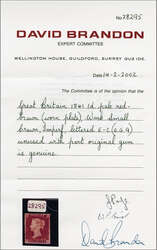 No 28295
DAVID BRANDON
EXPERT COMMITTEE
WELLINGTON HOUSE, GUILDFORD, SURREY GU2 5DE.
Date 14-2-2002
The Committee is of the opinion that the
Great Britain 1841 1d pale red-
brown (worn plate) Wmk small
Crown, Imperf, lettered E-C
unused with part original gum
is genuine.
28295
David Brandon